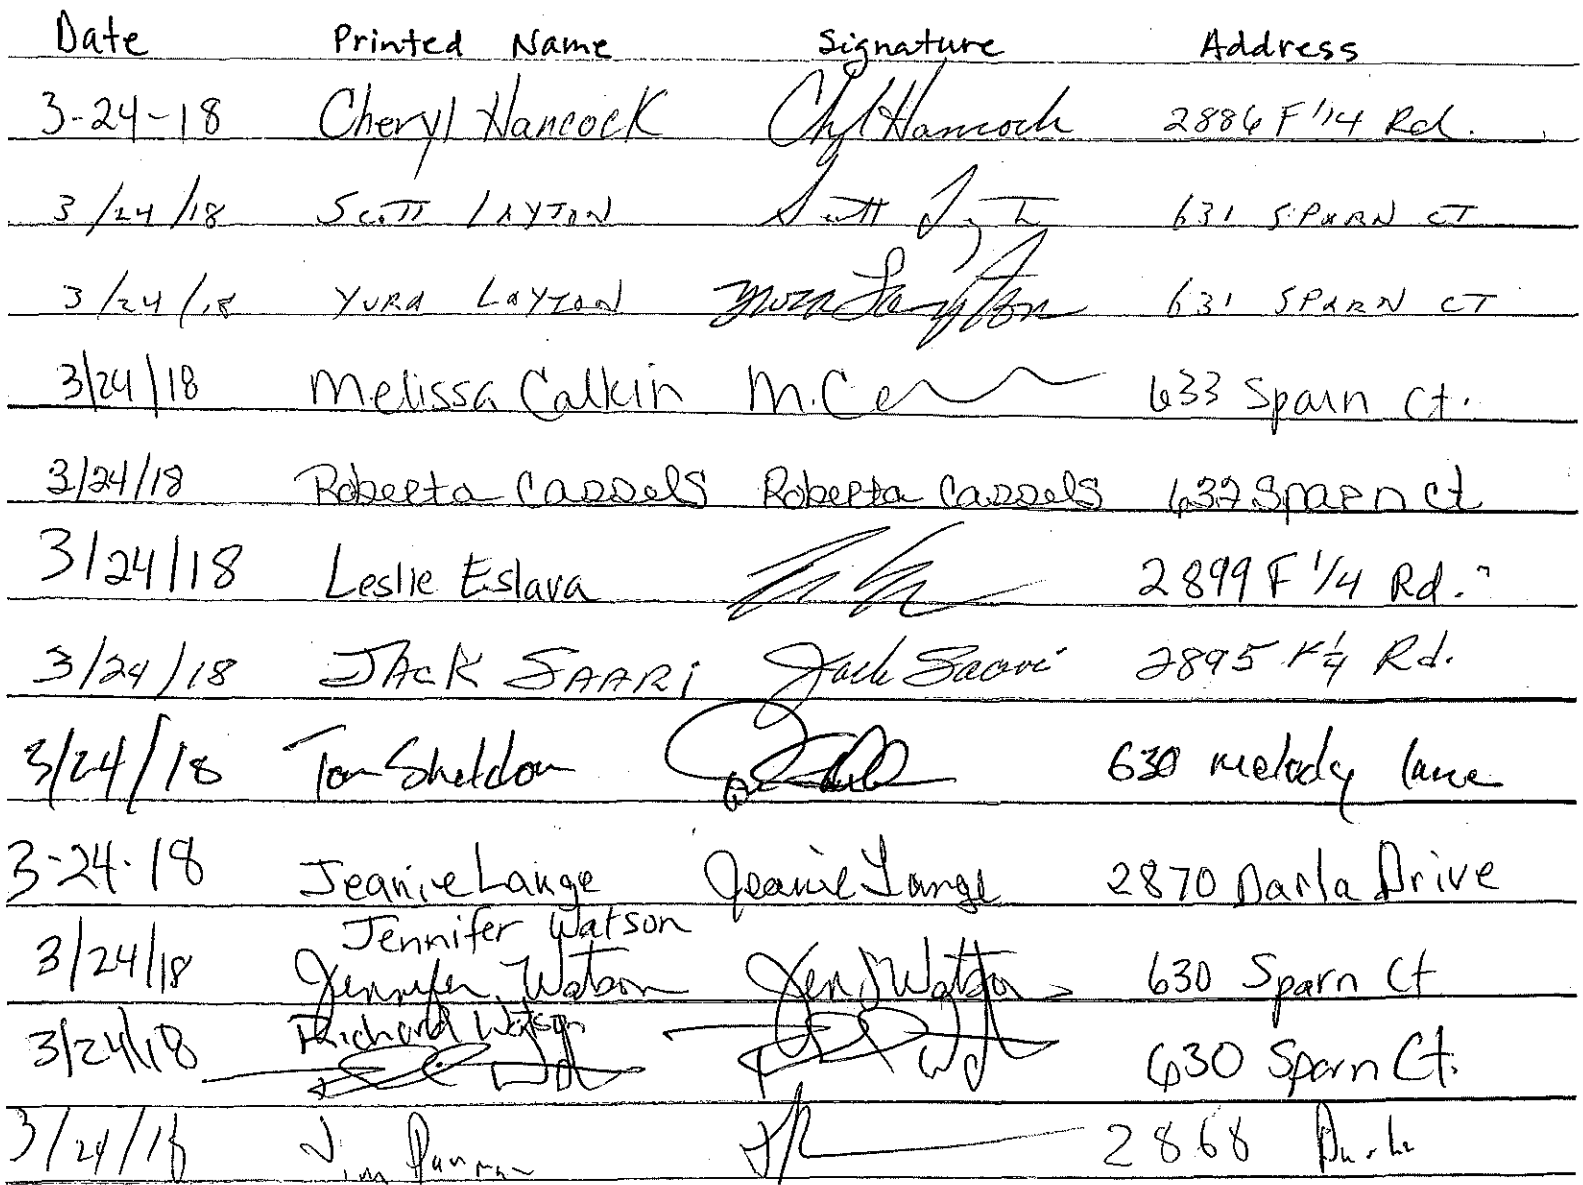 Date Printed Name Signature Address
3-24-18 Cheryl Hancock Chyl Hancock 2886 F 1/4 Rd.
3/24/18 Scott LAYTON Scott 631 SPARN CT
3/24/18 YURA LAYTON Yura Layton 631 SPARN CT
3/24/18 Melissa Calkin M. Ce 633 Sparn Ct.
3/24/18 Roberta Cassels Roberta Cassels 632 Sparn Ct
3/24/18 Leslie Eslava 2899 F 1/4 Rd.
3/24/18 JACK SAARi Jack Saari 2895 F 1/4 Rd.
3/24/18 Tom Sheldon 630 Melody lane
3-24-18 Jeanie Lange Jeanie Lange 2870 Darla Drive
Jennifer Watson
3/24/18 Jennifer Watson Jen Watson 630 Sparn Ct
3/24/18 Richard Watson 630 Sparn Ct.
3/24/18 Jim 2868